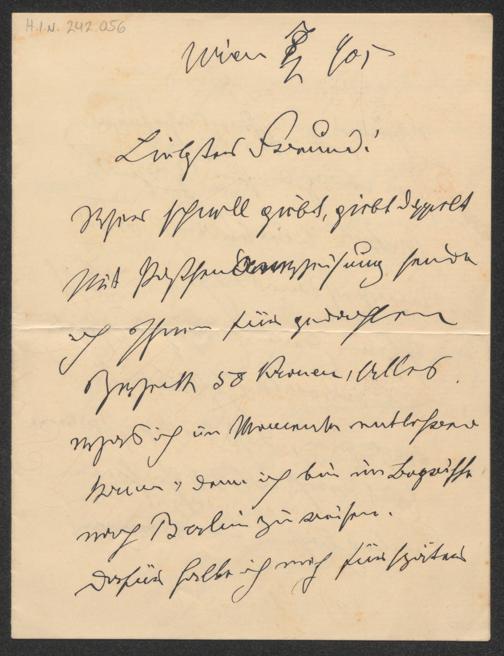 H.I.N. 242.056
Wien 905
Liebster Freund!
Wer schnell giebt, giebt doppelt
Mit Postanweisung sende
ich Ihnen für gedachten
Zweck 50 Kronen, Alles
was ich im Momente entbehren
kann, denn ich bin im Begriffe
nach Berlin zu reisen.
Dafür halte ich mich für später